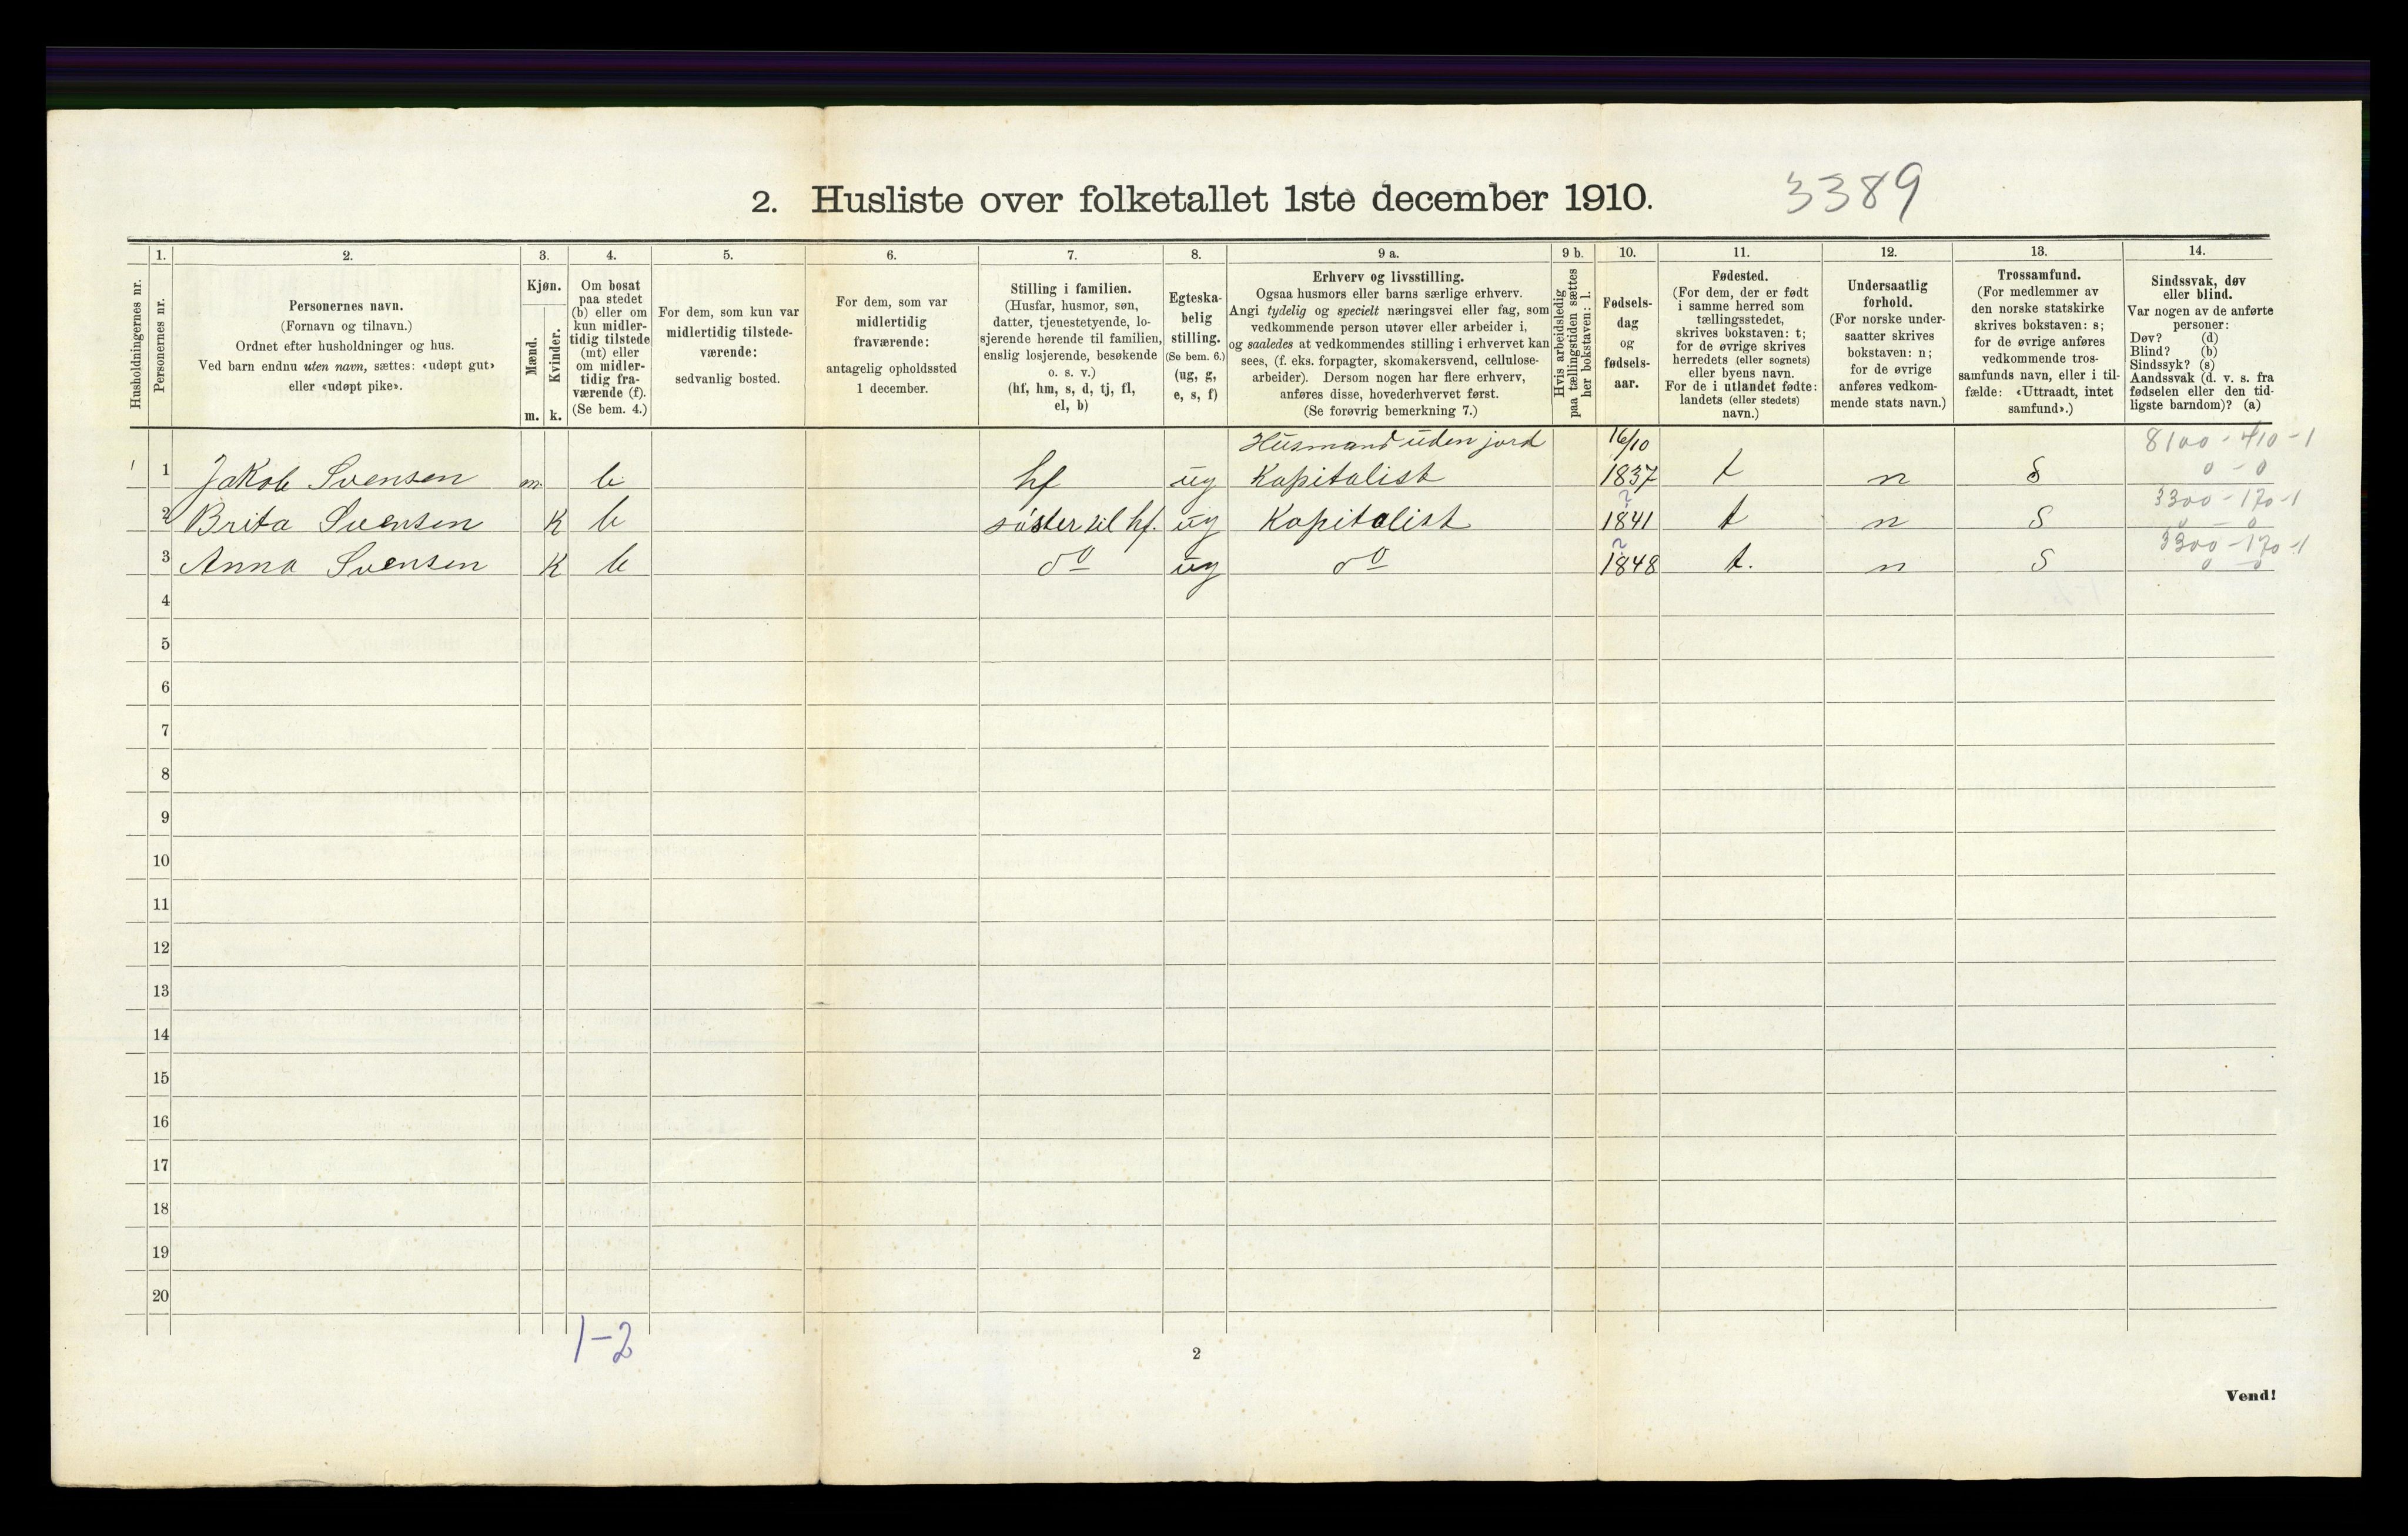 2. Husliste over folketallet 1ste december 1910. 3389
1. 2. 3. 4. 5. 6. 7. 8. 9 a. 9 b. 10. 11. 12. 13. 14.
Husholdningernes nr.
Personernes nr.
Personernes navn.
(Fornavn og tilnavn.)
Ordnet efter husholdninger og hus.
Ved barn endnu uten navn, sættes: «udøpt gut»
eller «udøpt pike».
Kjøn.
Mænd.
m.
Kvinder.
k.
Om bosat
paa stedet
(b) eller om
kun midler-
tidig tilstede
(mt) eller
om midler-
tidig fra-
værende (f).
(Se bem. 4.)
For dem, som kun var
midlertidig tilstede-
værende:
sedvanlig bosted.
For dem, som var
midlertidig
fraværende:
antagelig opholdssted
1 december.
Stilling i familien.
(Husfar, husmor, søn,
datter, tjenestetyende, lo-
sjerende hørende til familien,
enslig losjerende, besøkende
o. s. v.)
(hf, hm, s, d, tj, fl,
el, b)
Egteska-
belig
stilling.
(Se bem. 6.)
(ug, g,
e, s, f)
Erhverv og livsstilling.
Ogsaa husmors eller barns særlige erhverv.
Angi tydelig og specielt næringsvei eller fag, som
vedkommende person utøver eller arbeider i,
og saaledes at vedkommendes stilling i erhvervet kan
sees, (f. eks. forpagter, skomakersvend, cellulose-
arbeider). Dersom nogen har flere erhverv,
anføres disse, hovederhvervet først.
(Se forøvrig bemerkning 7.)
Hvis arbeidsledig
paa tællingstiden sættes
her bokstaven: l.
Fødsels-
dag
og
fødsels-
aar.
Fødested.
(For dem, der er født
i samme herred som
tællingsstedet,
skrives bokstaven: t;
for de øvrige skrives
herredets (eller sognets)
eller byens navn.
For de i utlandet fødte:
landets (eller stedets)
navn.)
Undersaatlig
forhold.
(For norske under-
saatter skrives
bokstaven: n;
for de øvrige
anføres vedkom-
mende stats navn.)
Trossamfund.
(For medlemmer av
den norske statskirke
skrives bokstaven: s;
for de øvrige anføres
vedkommende tros-
samfunds navn, eller i til-
fælde: «Uttraadt, intet
samfund».)
Sindssvak, døv
eller blind.
Var nogen av de anførte
personer:
Døv? (d)
Blind? (b)
Sindssyk? (s)
Aandssvak (d. v. s. fra
fødselen eller den tid-
ligste barndom)? (a)
Husmand uden jord 16/10 8100-410-1
1 1 Jakob Svensen m. b. hf ug Kapitalist 1837 t n S 0-0
? 3300-170-1
2 Brita Svensen K b søster til hf. ug Kapitalist 1841 t n S 0-0
? 3300-170-1
3 Anna Svensen K b do ug do 1848 t. n S 0-0
4
5
6
7
8
9
10
11
12
13
14
15
16
17
18
19
20
1-2
2
Vend!